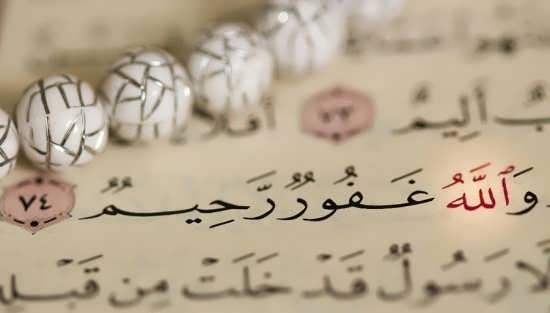 أَلِيمٌ ٧٣ أَفَلَا
وَٱللَّهُ غَفُورٌ رَّحِيمٌ ٧٤
لَّا رَسُولٌ قَدْ خَلَتْ مِن قَبْلِهِ